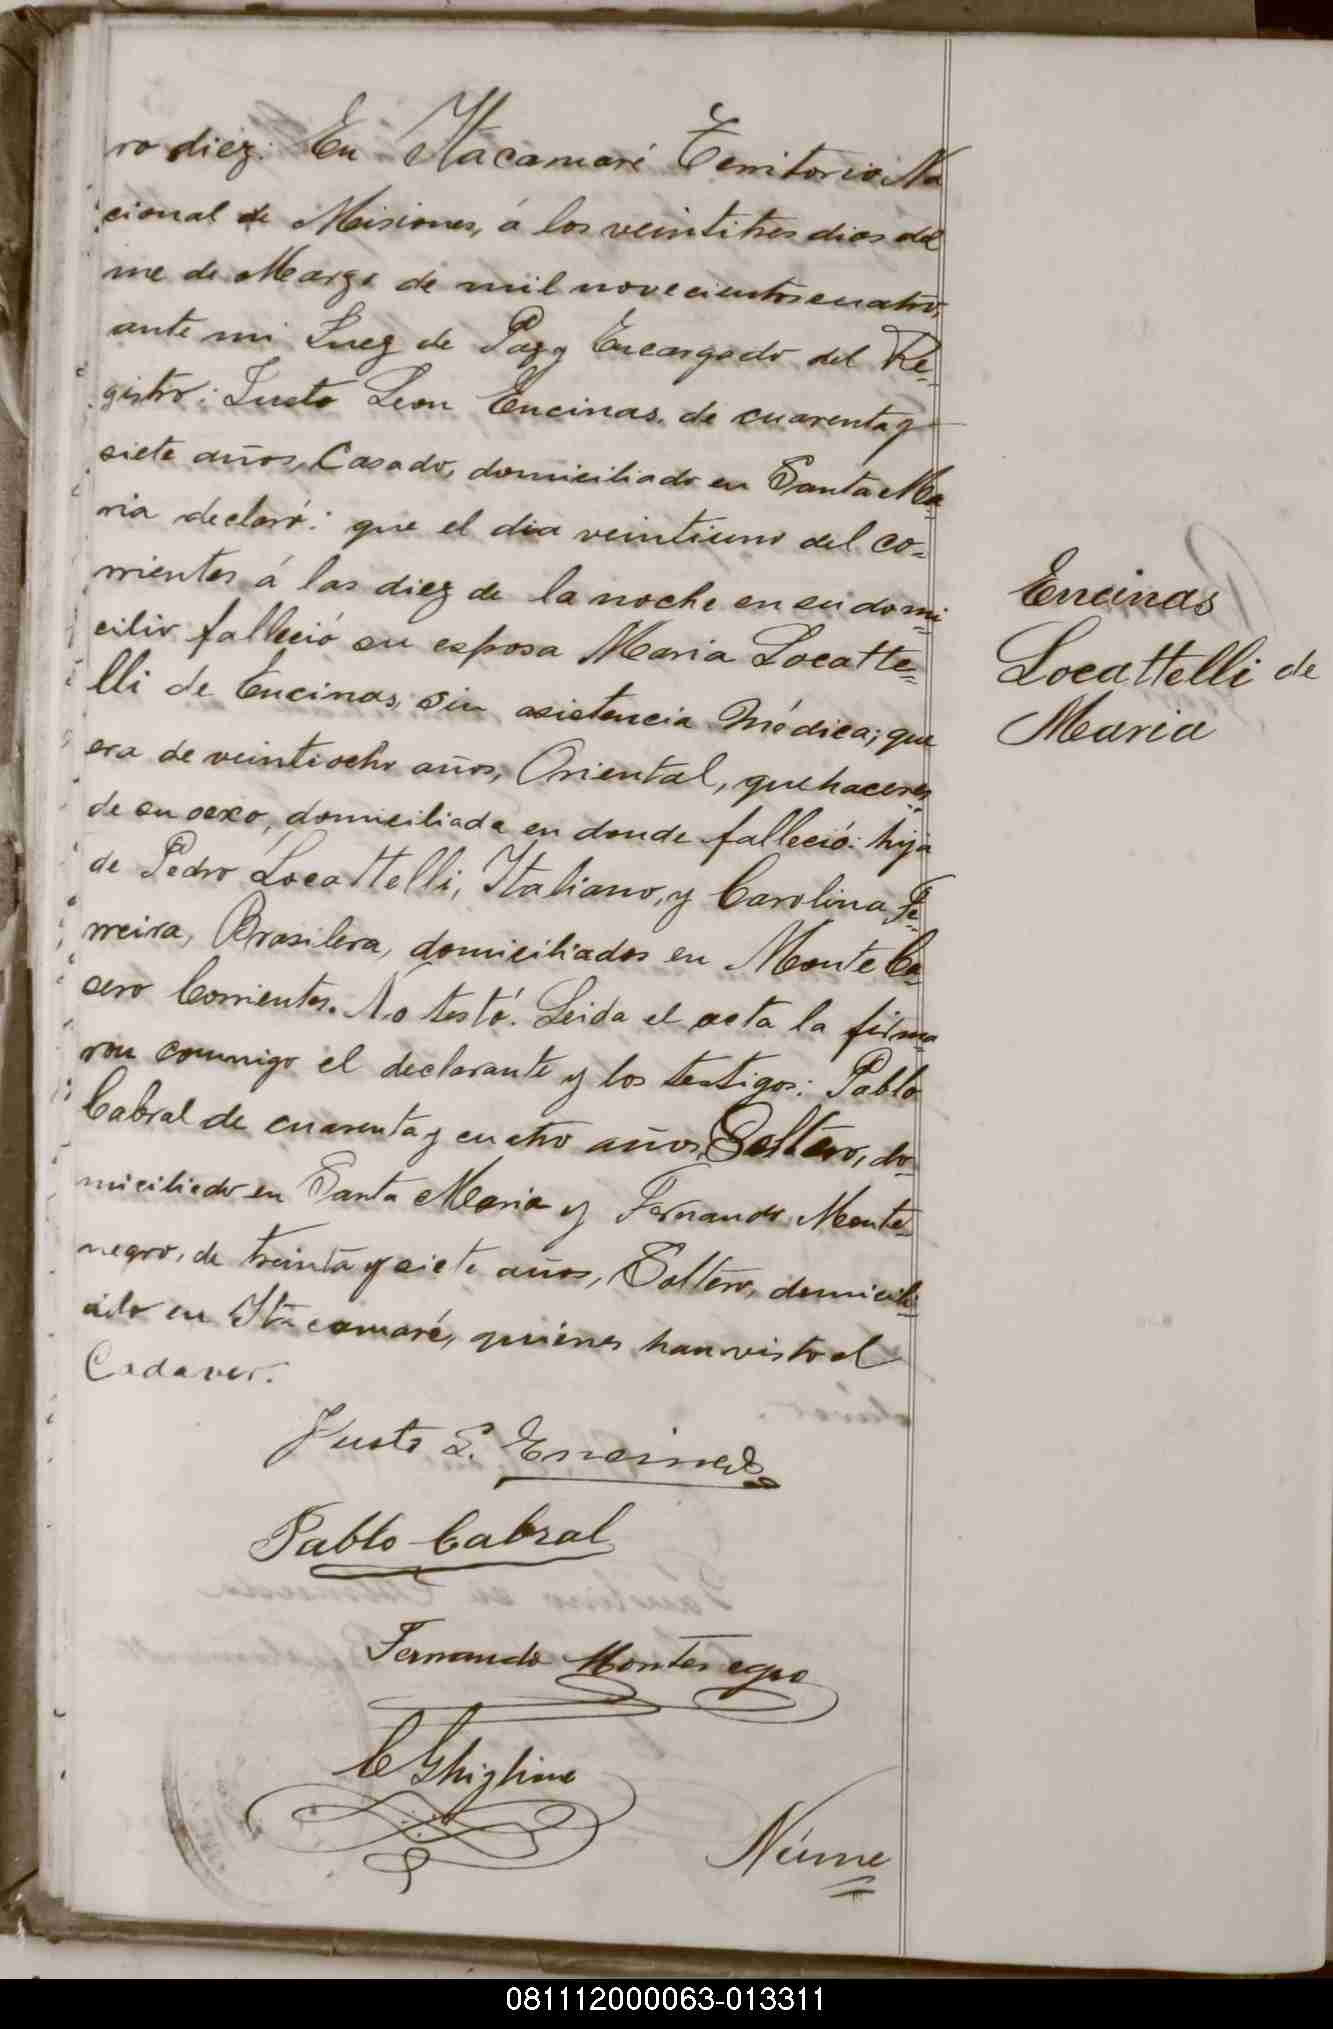 ro diez. En Itacamaré Territorio Na
cional de Misiones, á los veintitres dias del
me de Marzo de mil novecientos cuatro,
ante mi Juez de Paz y Encargado del Re=
gistro: Justo Leon Encinas, de cuarenta y
siete años, Casado, domiciliado en Santa Ma=
ria declaró: que el dia veintiuno del co=
rrientes á las diez de la noche en su domi=
cilio falleció su esposa Maria Locatte=
lli de Encinas, sin asistencia Médica; que
era de veintiocho años, Oriental, quehaceres
de su sexo, domiciliada en donde falleció: hija
de Pedro Locattelli, Italiano, y Carolina Fe=
rreira, Brasilera, domiciliados en Monte Ca=
sero Corrientes. No testó. Leida el acta la firma=
ron conmigo el declarante y los testigos: Pablo
Cabral de cuarenta y cuatro años, Soltero, do=
miciliado en Santa Maria y Fernando Monte=
negro, de treinta y siete años, Soltero, domicili=
ado en Itacamaré, quiénes han visto el
Cadaver.
Encinas
Locattelli de
Maria
Justo L. Encinas
Pablo Cabral
Fernando Montenegro
C Ghiglione
Núme=
081112000063-013311